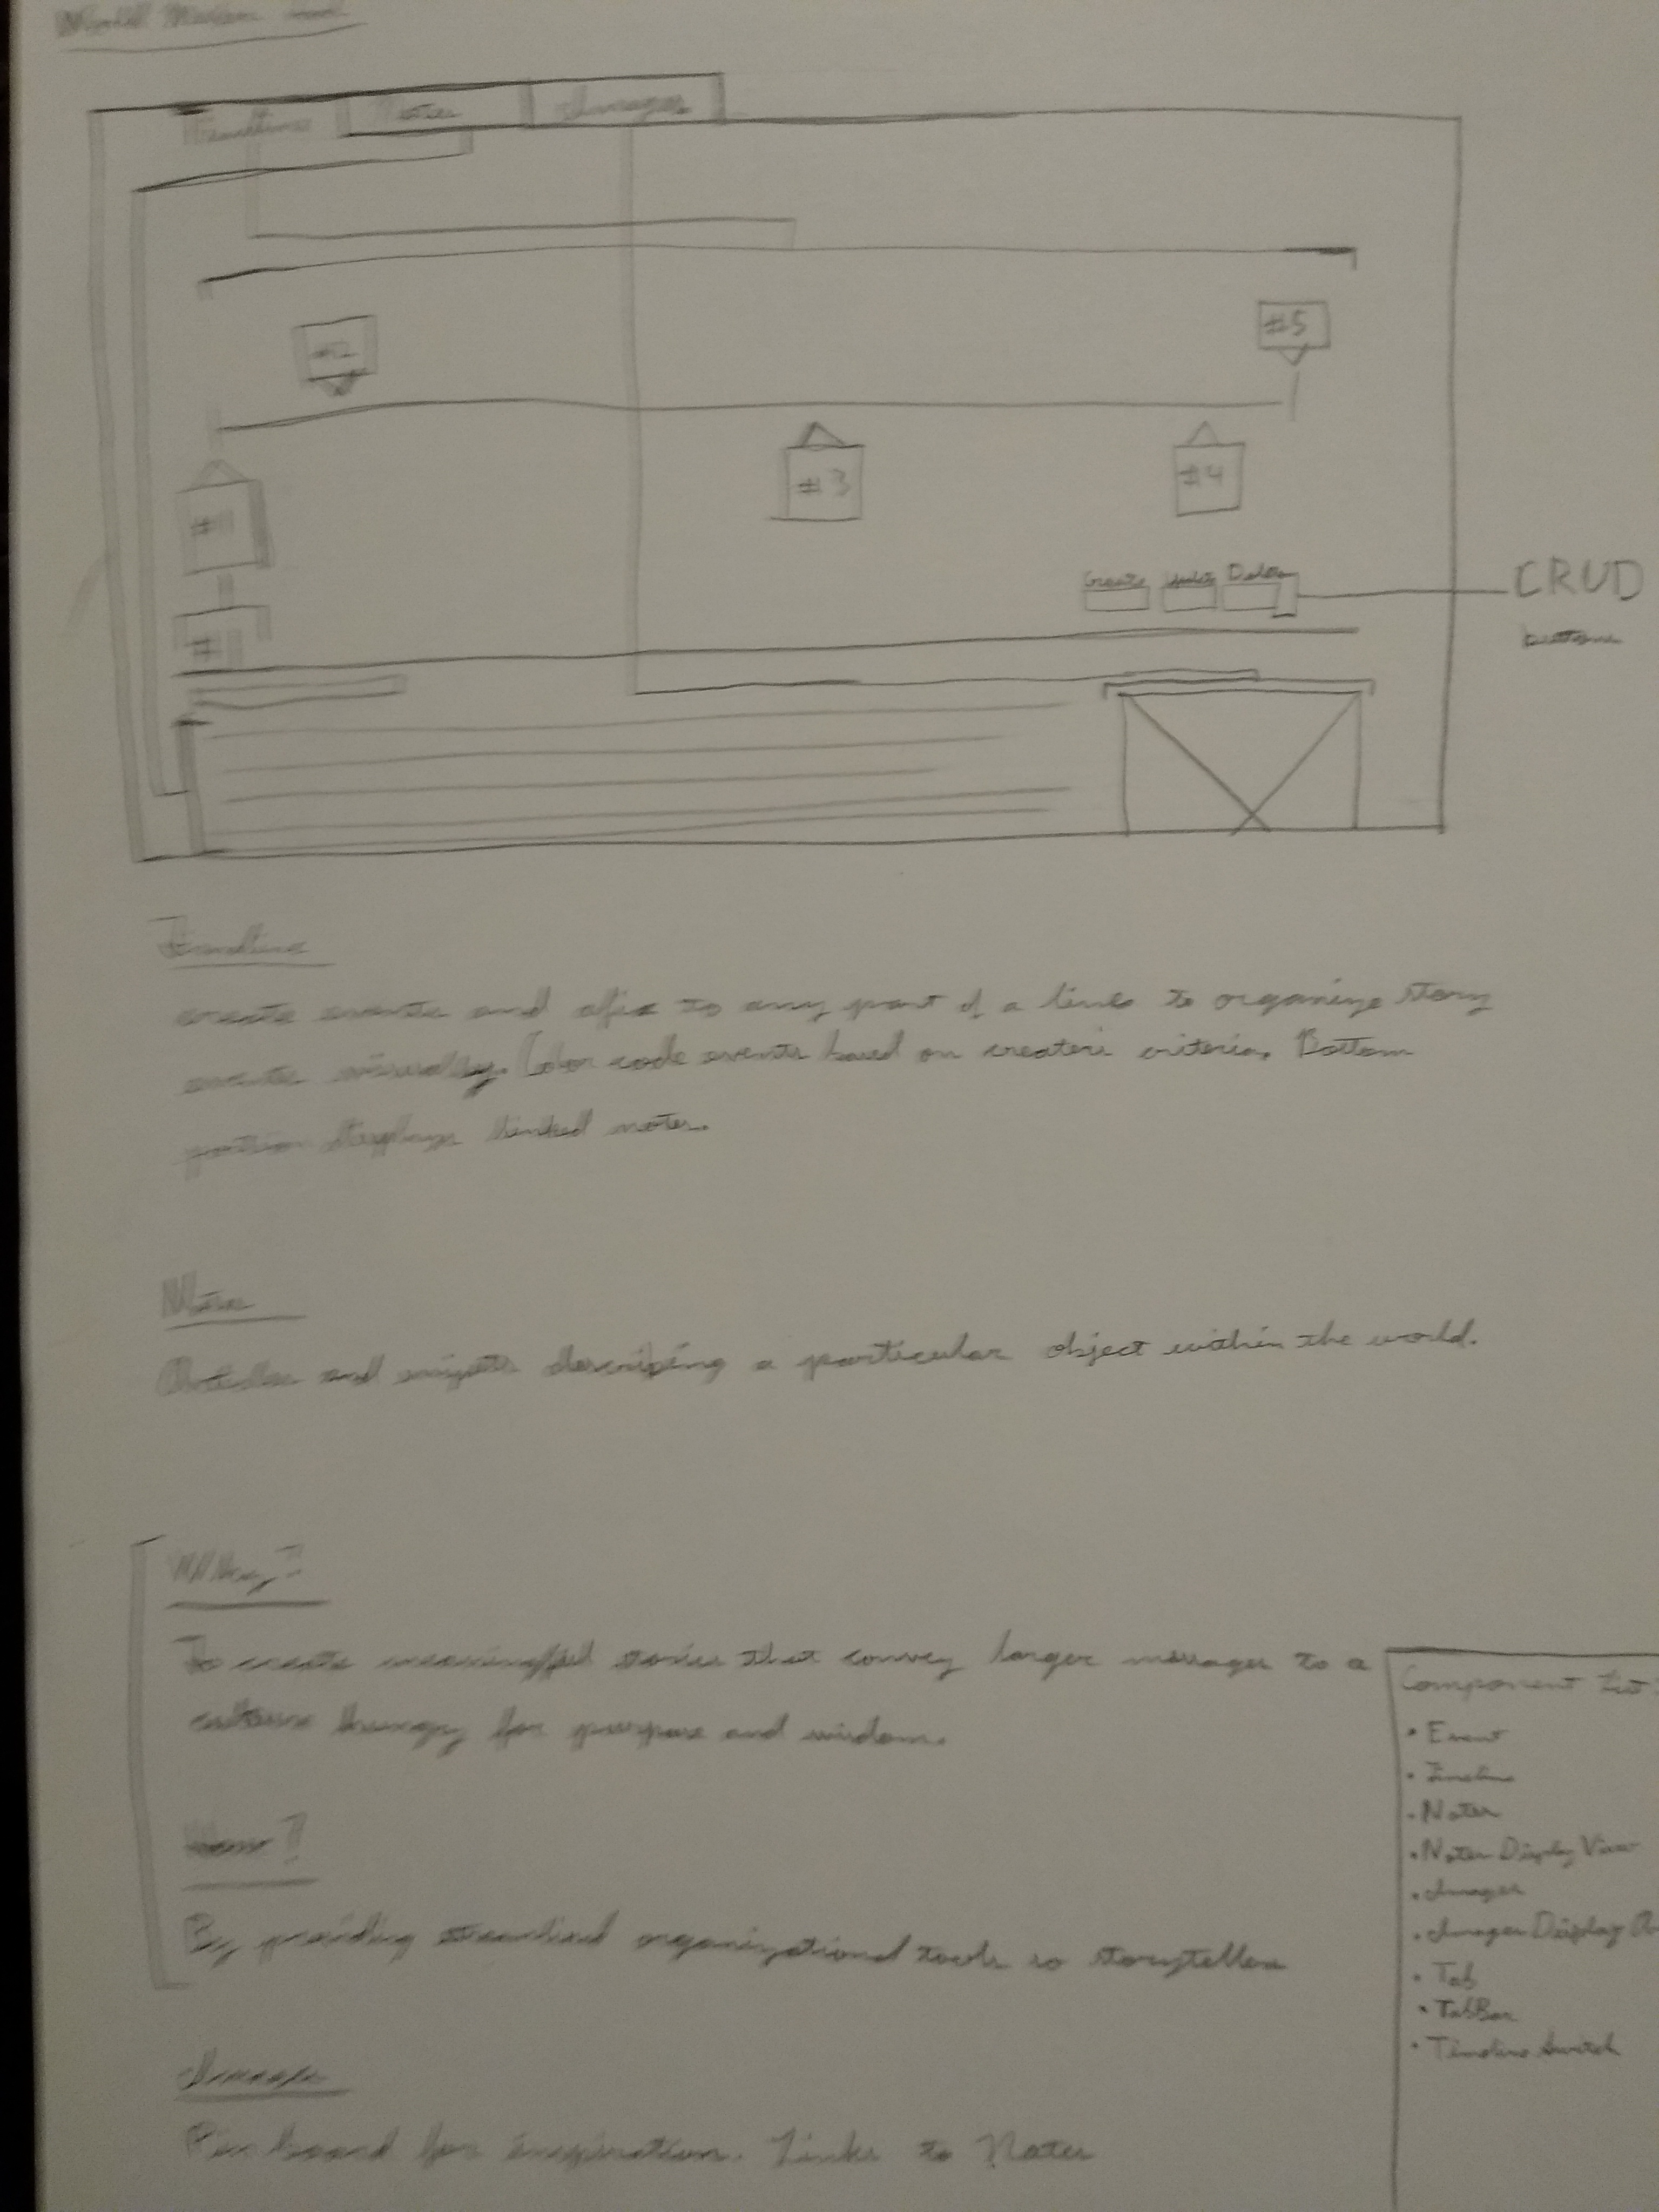 World Maker Tool
Timeline Notes Images
#2
#5
#3
#4
#1
#1
Create Update Delete
CRUD
buttons
Timeline
create events and afix to any part of a line to organize story
events visually. Color code events based on creators criteria. Bottom
portion displays linked notes.
Notes
Articles and snippets describing a particular object within the world.
Why?
To create meaningful stories that convey larger messages to a
culture hungry for purpose and wisdom.
How?
By providing streamlined organizational tools to storytellers
Images
Pin board for inspiration. Links to Notes
Component List
• Event
• Timeline
• Notes
• Notes Display View
• Images
• Images Display
• Tab
• TabBar
• Timeline Switch